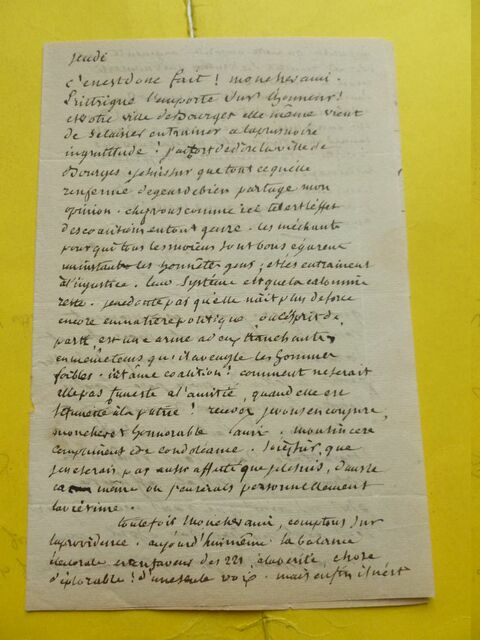 jeudi
c'en est donc fait ! mon cher ami.
l'intrigue l'emporte sur l'honneur !
et votre ville de Bourges elle même vient
de se laisser entrainer a la plus noire
ingratitude ! j'ai tort de dire la ville de
Bourges. je suis sur que tout ce qu'elle
renferme de gens de bien partage mon
opinion. chez vous comme ici tel est l'effet
des coalitions en tout genre. les méchants
pour qui tous les moiens sont bons égarent
un instant les honnêtes gens ; et les entrainent
a l'injustice. leur système est que la calomnie
reste. je ne doute pas qu'elle n'ait plus de force
encore en matière politique, où l'esprit de
parti, est une arme a deux tranchants
en même tems qu'il aveugle les hommes
foibles. infâme coalition ! comment ne serait
elle pas funeste a l'amitié, quand elle est
si funeste à la patrie ! recevez je vous en conjure,
mon cher et honnorable ami, mon sincere
compliment de condoléance. soiès sur, que
je ne serais pas aussi affecté que je le suis, dans le
cas même où j'en serais personnellement
la victime.
toute fois mon cher ami, comptons sur
la providence. aujourd'hui même la balance
électorale est en faveur des 221, a la verité, chose
déplorable ! d'une seule voix. mais enfin il n'est